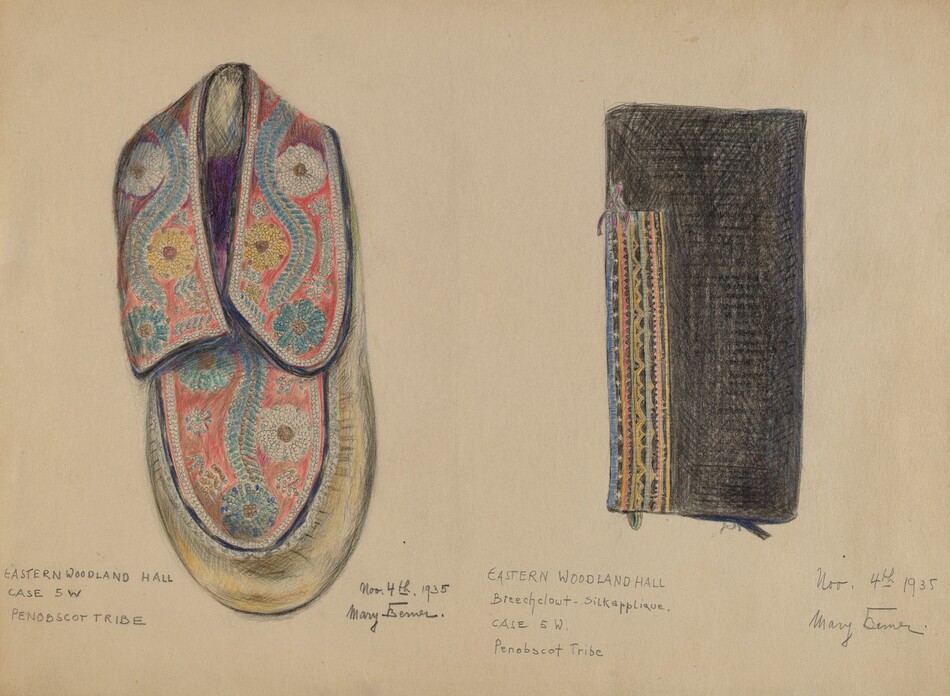 EASTERN WOODLAND HALL
CASE 5 W
PENOBSCOT TRIBE
Nov. 4th. 1935
Mary Berner.
EASTERN WOODLAND HALL
Breechclout - Silkapplique.
CASE 5 W.
Penobscot Tribe
Nov. 4th 1935
Mary Berner.